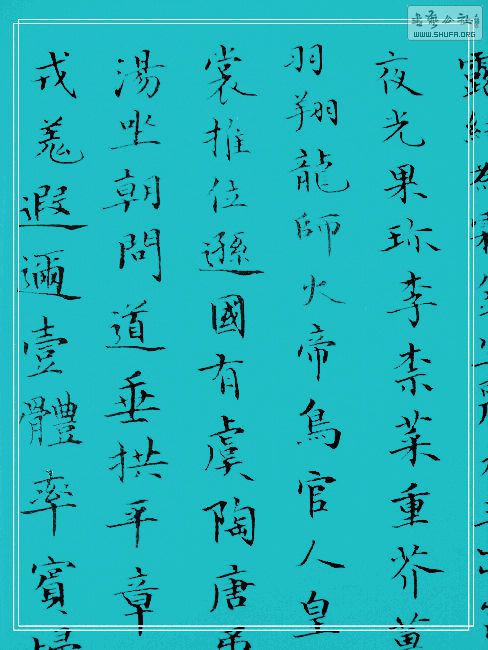 书艺公社
WWW.SHUFA.ORG
露結為霜
夜光果珍李柰菜重芥薑
羽翔龍師火帝鳥官人皇
裳推位遜國有虞陶唐弔
湯坐朝問道垂拱平章
戎羌遐邇壹體率賓歸